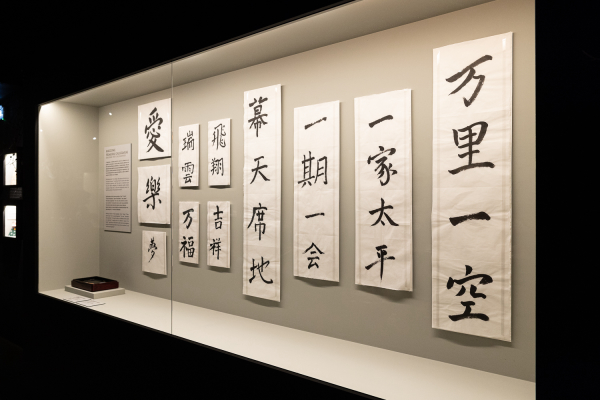 万里一空
一家太平
一期一会
幕天席地
飛翔
吉祥
瑞雲
万福
愛
樂
夢